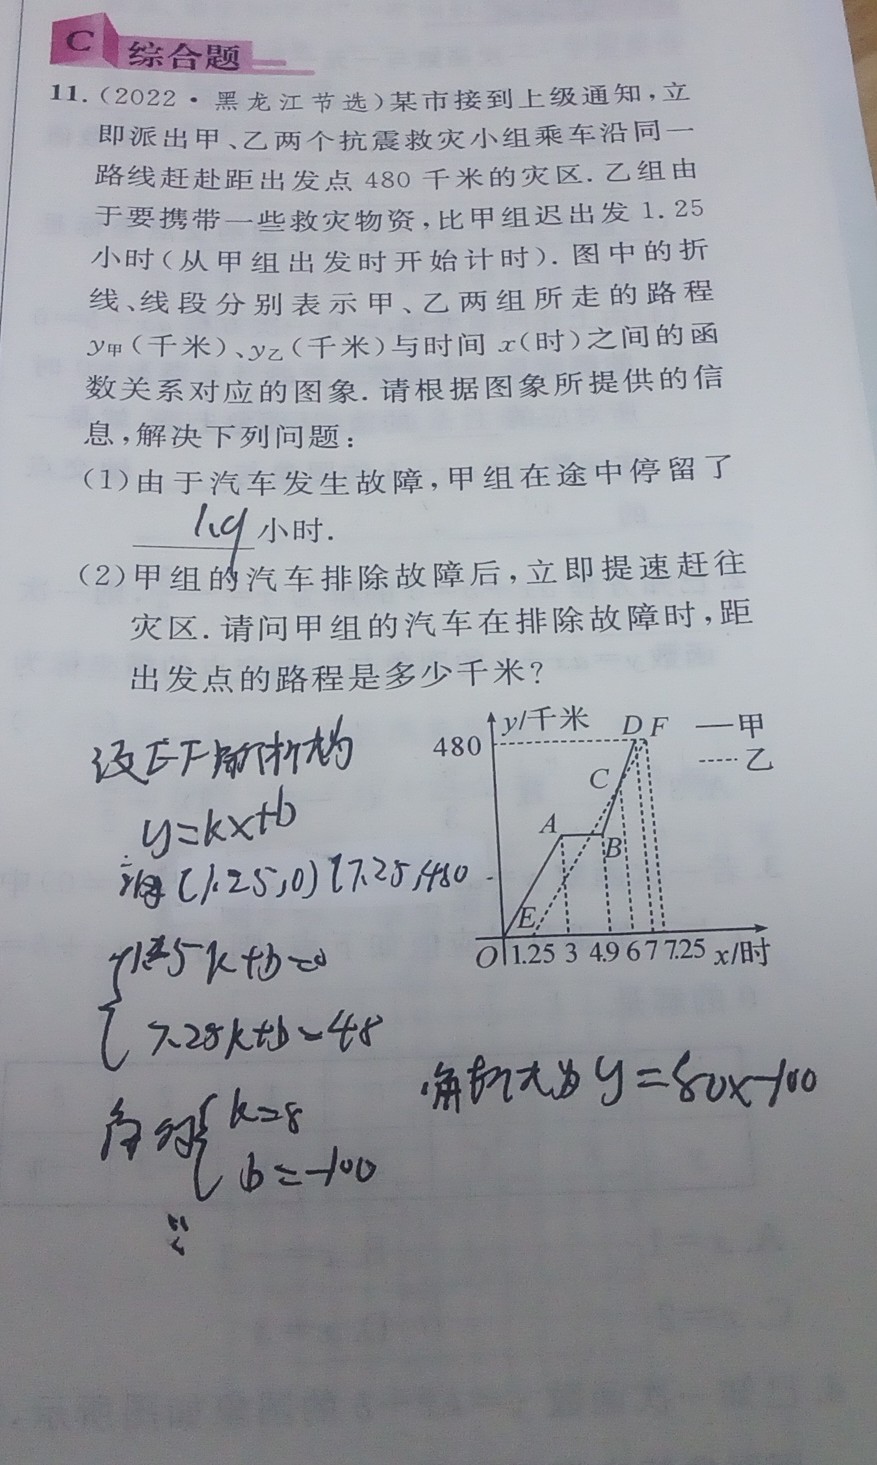 C 综合题
11.(2022·黑龙江节选)某市接到上级通知,立
即派出甲、乙两个抗震救灾小组乘车沿同一
路线赶赴距出发点 480 千米的灾区.乙组由
于要携带一些救灾物资,比甲组迟出发 1.25
小时(从甲组出发时开始计时).图中的折
线、线段分别表示甲、乙两组所走的路程
y甲(千米)、y乙(千米)与时间 x(时)之间的函
数关系对应的图象.请根据图象所提供的信
息,解决下列问题:
(1)由于汽车发生故障,甲组在途中停留了
1.9 小时.
(2)甲组的汽车排除故障后,立即提速赶往
灾区.请问甲组的汽车在排除故障时,距
出发点的路程是多少千米?
y/千米 D F —甲
480
-----乙
C
A
B
E
O 1.25 3 4.9 6 7 7.25 x/时
设EF解析式为
y=kx+b
(1.25,0)(7.25,480
1.25k+b=0
7.25k+b=48
k=8
b=-100
解析式为y=80x-100